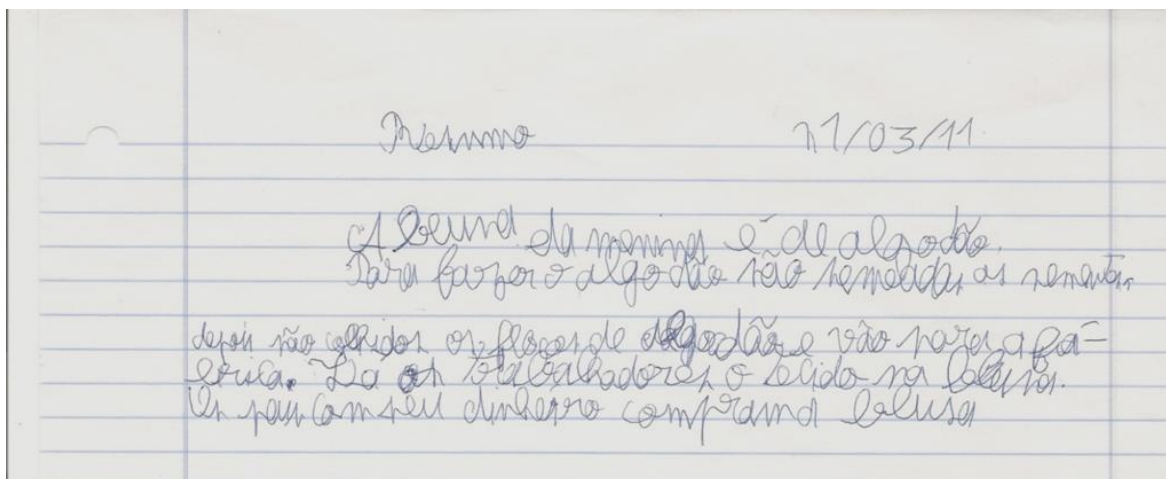 Resumo 21/03/11
A blusa da menina é de algodão.
Para fazer o algodão são semeadas as sementes
depois são colhidos os flocos de algodão e vão para a fá-
brica. La os trabalhadores o tecido na blusa.
Os pais com seu dinheiro compram a blusa